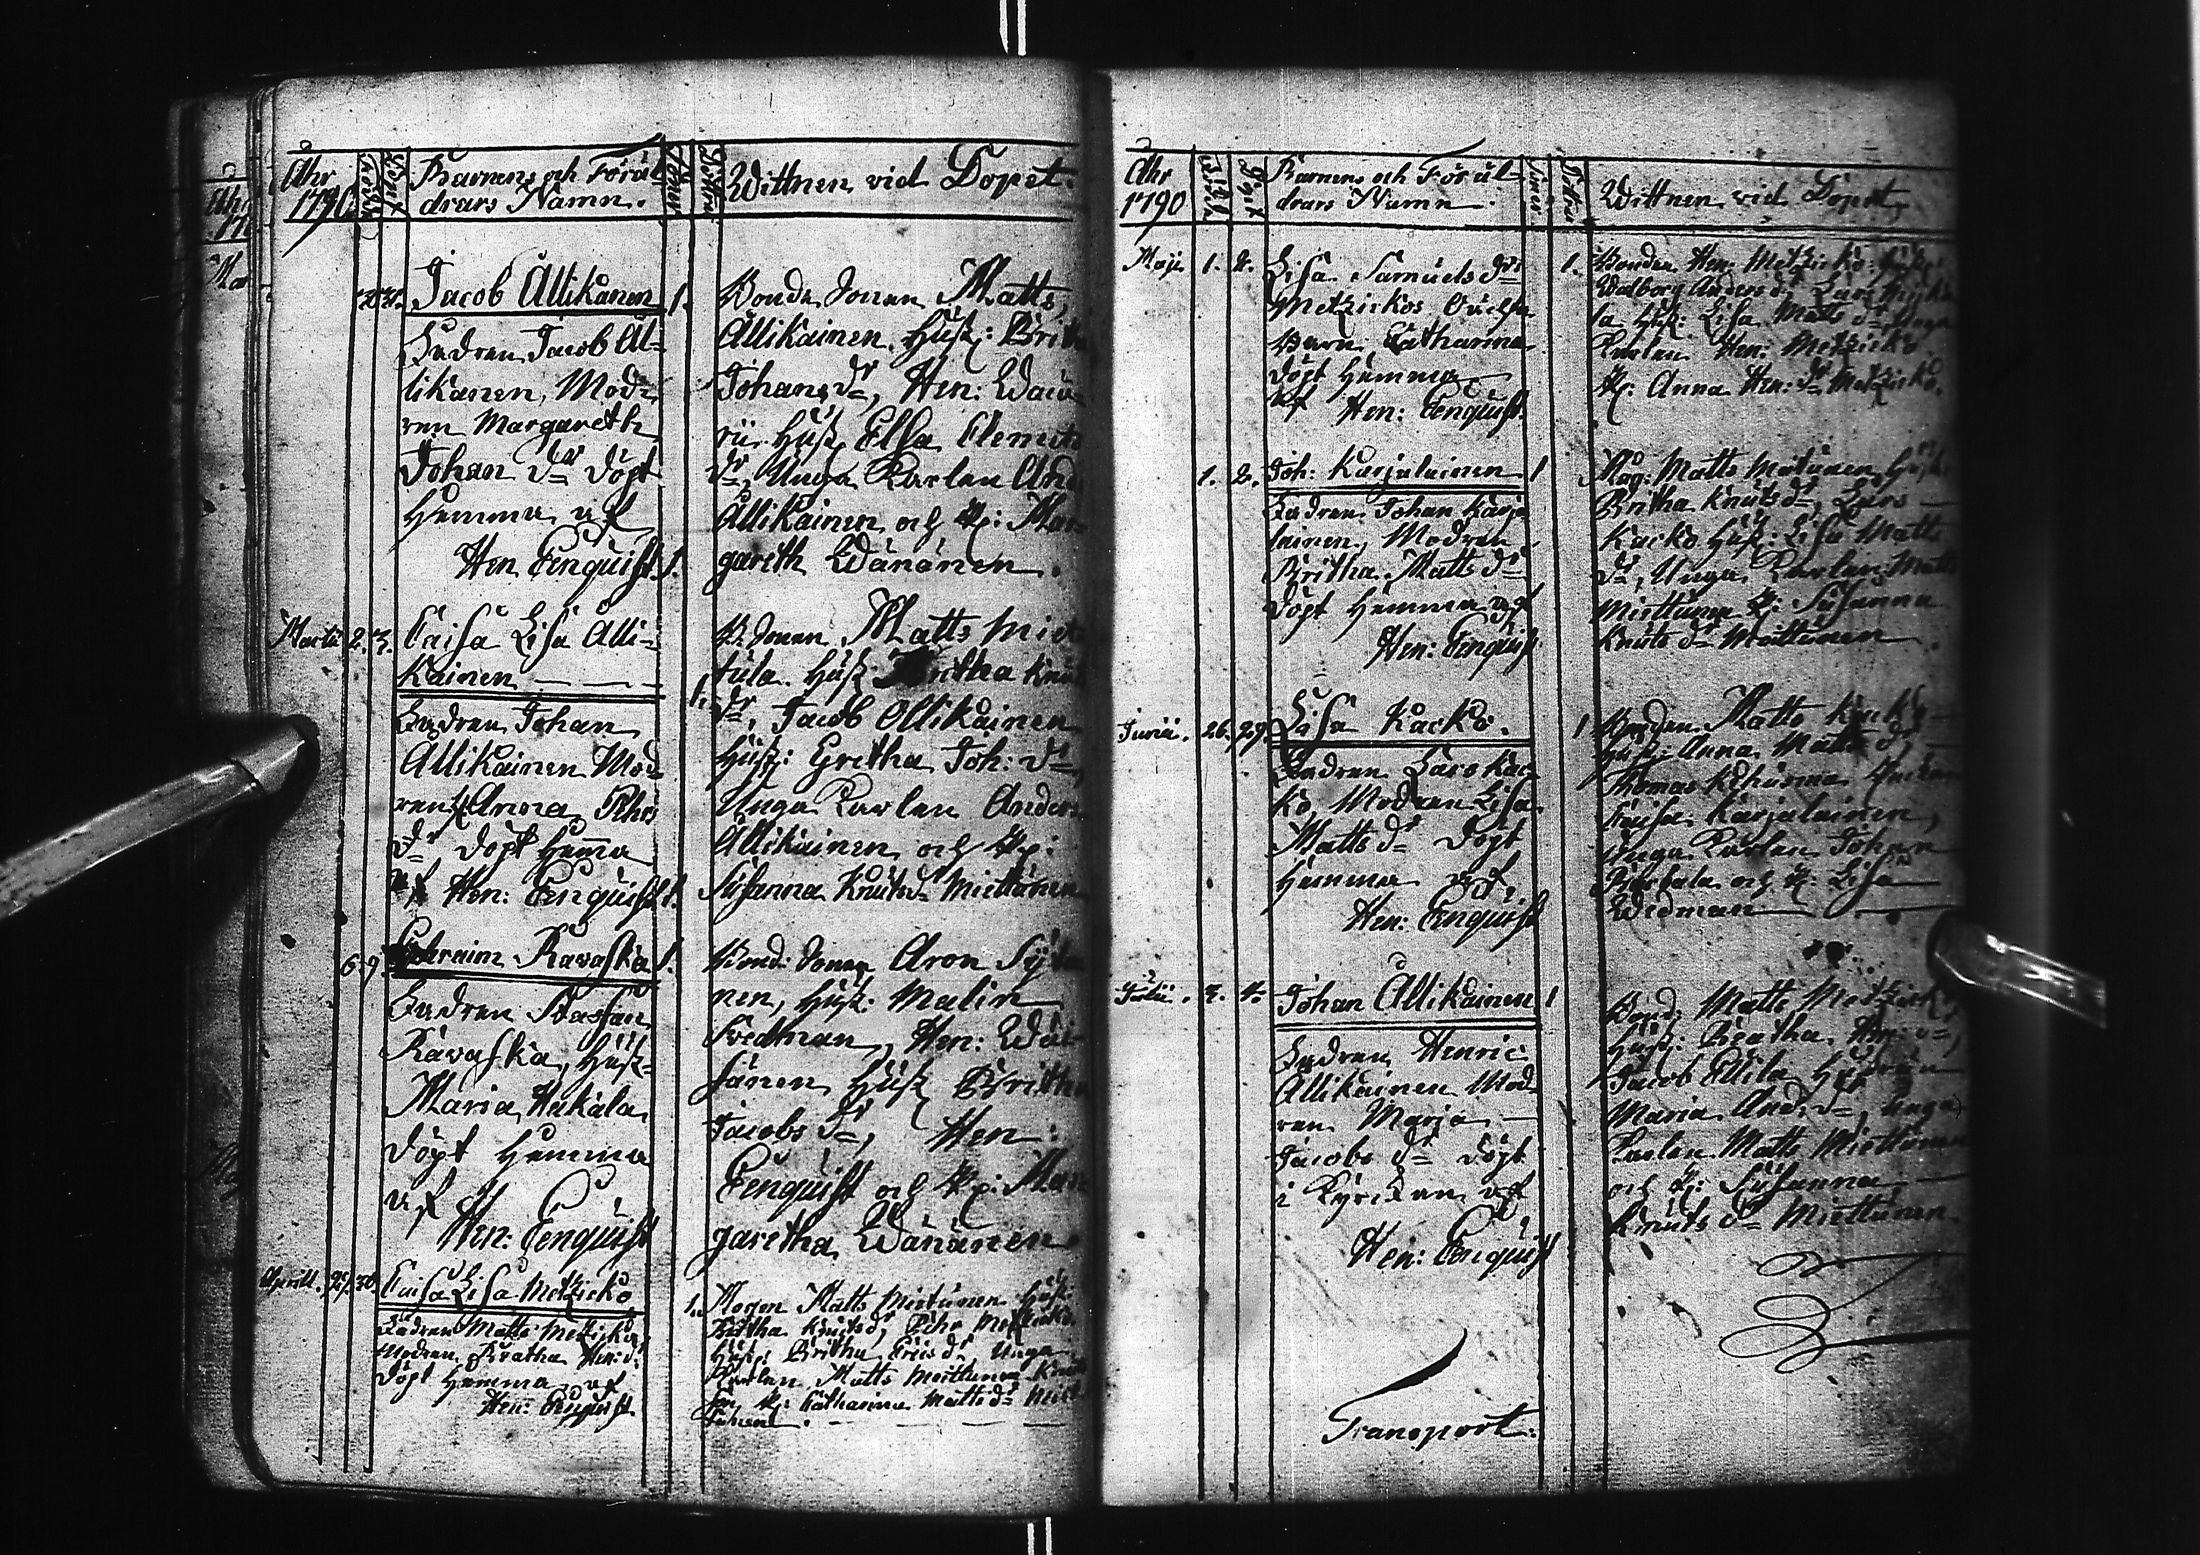 Ahr
1790
Barnens och Föräl-
drars Namn.
Söner
Döttrar
Wittnen vid Dopet.
Jacob Allikanen 1.
Fadren Jacob Al-
likanen, Mod-
ren Margareth
Johan dr döpt
Hemma af
Hen Enquist
Bonde Sonen Matts
Allikainen, Hust: Brit
Johans dr, Hen:
Hust Elsa Clemets
dr, Unga Karlen And
Allikainen och P: Mar
gareth Wänänen.
Martii 2. 3. Caisa Lisa Alli-
kainen
Fadren Johan
Allikainen Mod
ren Anna Thos
dr döpt Hemma
af Hen: Enquist
B. Sonen Matts Miet
tula Hust Britha Knut
dr, Jacob Ollikainen
Hust: Gretha Joh: dr,
Unga Karlen Anders
Allikainen och P:
Susanna Knuts dr Miettunen
6 9 Ephraim Ravaska 1.
Fadren Staffan
Ravaska, Hust-
Maria Hakala
döpt Hemma
af
Hen: Enquist
Bond: Sonen Aron
nen, Hust: Malin
Fredman, Hen: Wäi-
sänen Hust Britha
Jacobs dr, Hen:
Enquist och P: Mar
garetha Wänänen
Aprill. 29. 30. Caisa Lisa Metzicko
Fadren Matts Metzicko,
Modren Beatha Hen: dr
döpt Hemma af
Hen: Enquist
1. Matts Miettunen Hust:
Britha Knuts dr, Pehr Metzicko
Hust: Britha Erics dr Unga
Karlen Matts Miettunen Knut
son, P: Catharina Matts dr Miet
tunen.
Ahr
1790
Barnens och Föräl-
drars Namn.
Söner
Döttrar
Wittnen vid Dopet
Maji 1. 2. Lisa Samuels dr
Metzickos
Barn Catharina
döpt Hemma
af Hen: Enquist
1. Bonden Hen: Metzicko
Walborg Anders dr, Lars
Hust: Lisa Matts dr Unga
Karlen Hen: Metzicko
P: Anna Hen: dr Metzicko.
1. 2. Joh: Karjalainen 1
Fadren Johan Karja
lainen, Modren
Britha Matts dr
döpt Hemma af
Hen: Enquist
Matts Miettunen Hust
Britha Knuts dr, Lars
Kacko Hust: Lisa Matts
dr, Unga Karlen Matts
Miettunen P: Susanna
Knuts dr Miettunen
Junii. 26. 29. Lisa Kacko.
Fadren Lars Kac-
ko Modren Lisa
Matts dr döpt
Hemma af
Hen: Enquist
1 Matts Kacko
Hust: Anna Matts dr,
Thomas Kähärinä
Caisa Karjalainen,
Unga Karlen Johan
och P: Lisa
Wedman
Julii. 3. 4. Johan Allikainen 1
Fadren Henric
Allikainen Mod-
ren Marja
Jacobs dr döpt
i Kyrckan af
Hen: Enquist
Bond: Matts Metzicko
Hust: Beatha Hen: dr,
Jacob Hustrun
Maria And: dr, Unga
Karlen Matts Miettunen
och P: Susanna
Knuts dr Miettunen.
Transport.